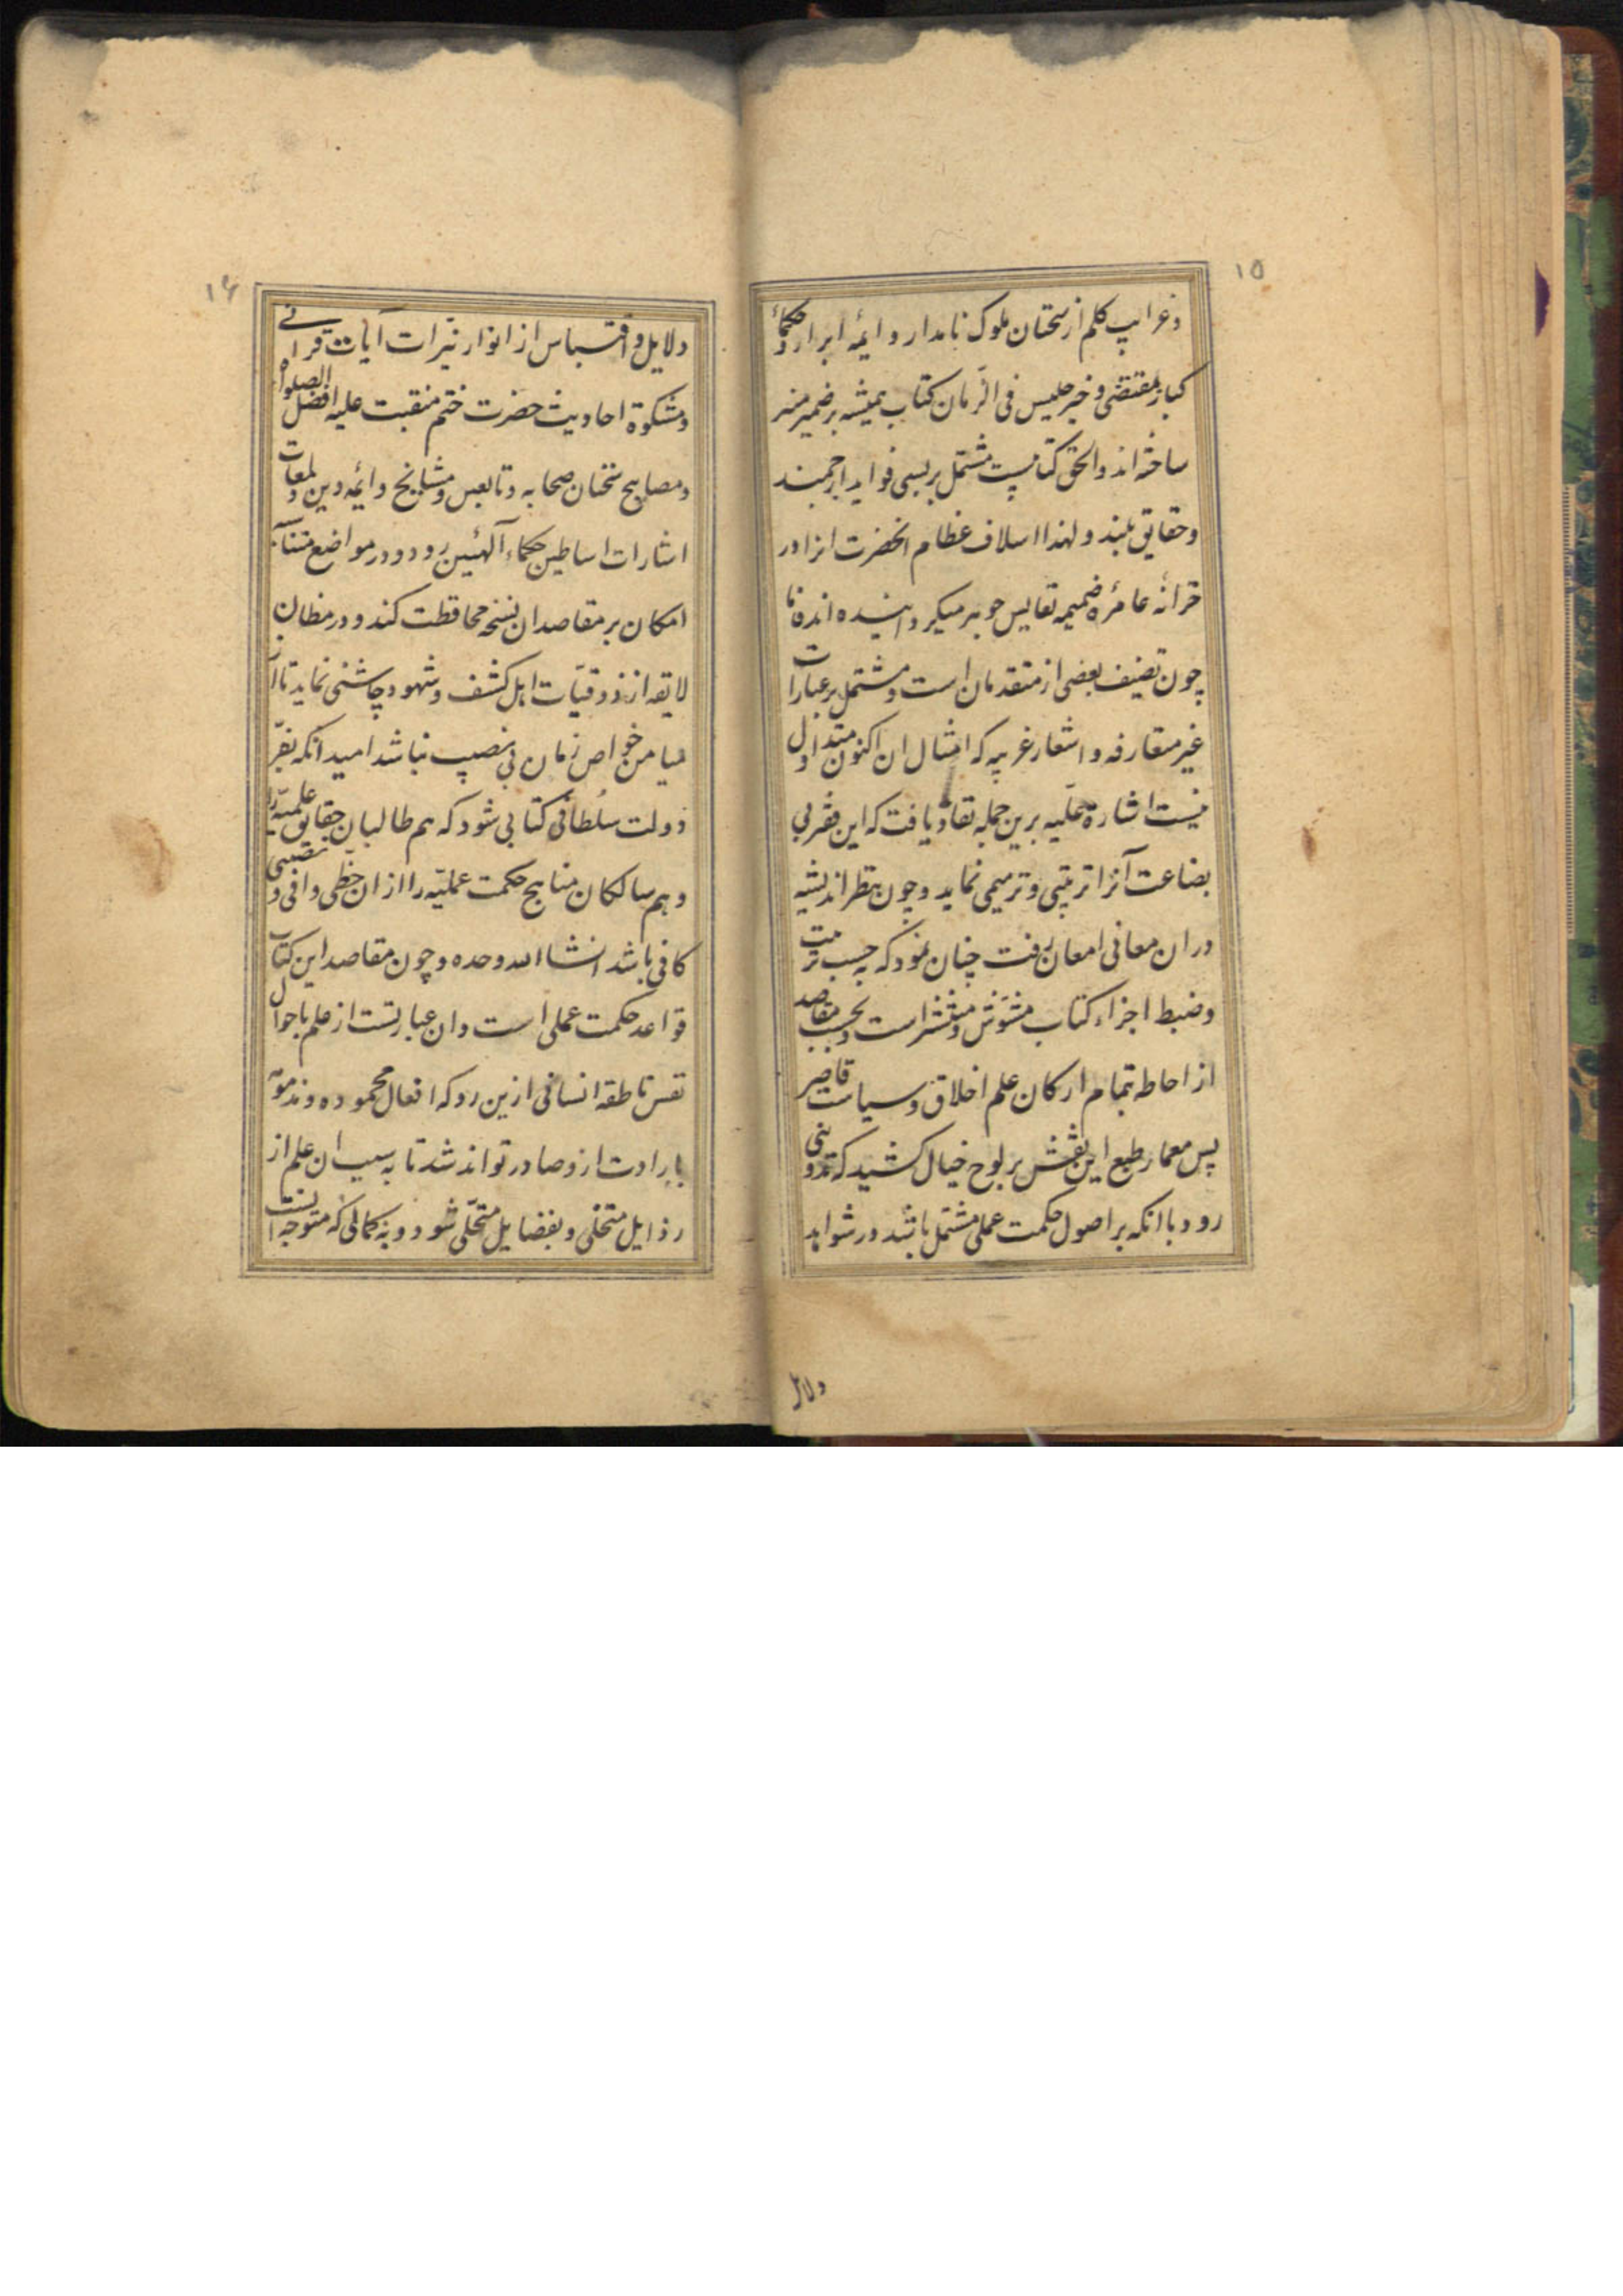 ۱۵
و غرایب کلم از سخنان ملوک نامدار و ایمه ابرار و حکماء
کبار بمقتضی و خیر جلیس فی الزمان کتاب همیشه بر ضمیر منیر
ساخته اند و الحق کتابیست مشتمل بر بسی فواید ارجمند
و حقایق بلند و لهذا اسلاف عظام انحضرت انرا در
خزانه عامره ضمیمه نفایس جوهر میکردانیده اند فاما
چون تصنیف بعضی از متقدمان است و مشتمل بر عبارات
غیر متعارفه و اشعار غریبه که امثال ان اکنون متداول
نیست اشارة علیه برین جمله نفاذ یافت که این فقیر بی
بضاعت آنرا ترتیبی و ترمیمی نماید و چون بنظر اندیشه
در ان معانی امعان رفت چنان نمود که بحسب ترتیب
و ضبط اجزاء کتاب مشوش و منتشر است و بحسب مقاصد
از احاطه بتمام ارکان علم اخلاق و سیاست قاصر
پس معمار طبع این نقش بر لوح خیال کشید که تدوینی
رود با انکه بر اصول حکمت عملی مشتمل باشد در شواهد
دلایل
۱۶
دلایل و اقتباس از انوار نیرات آیات قرانی
و مشکوة احادیث حضرت ختم منقبت علیه افضل الصلوة
و مصابیح سخنان صحابه و تابعین و مشایخ و ائمه دین و لمعات
اشارات اساطین حکماء آلهیین رود و در مواضع
امکان بر مقاصد ان نسخه محافظت کند و در مظان
لایقه از ذوقیات اهل کشف و شهود چاشنی نماید تا از
میامن خواص زمان بی نصیب نباشد امید انکه بفر
دولت سلطانی کتابی شود که هم طالبان حقایق علمیه را
و هم سالکان مناهج حکمت عملیه را از ان حظی وافی و نصیبی
کافی باشد انشا الله وحده و چون مقاصد این کتاب
قواعد حکمت عملی است و ان عبارتست از علم باحوال
نفس ناطقه انسانی ازین رو که افعال محموده و مذمومه
بارادت ازو صادر تواند شد تا به سبب ان علم از
رذایل متخلی و بفضایل متحلی شود و به کمالی که متوجه انست